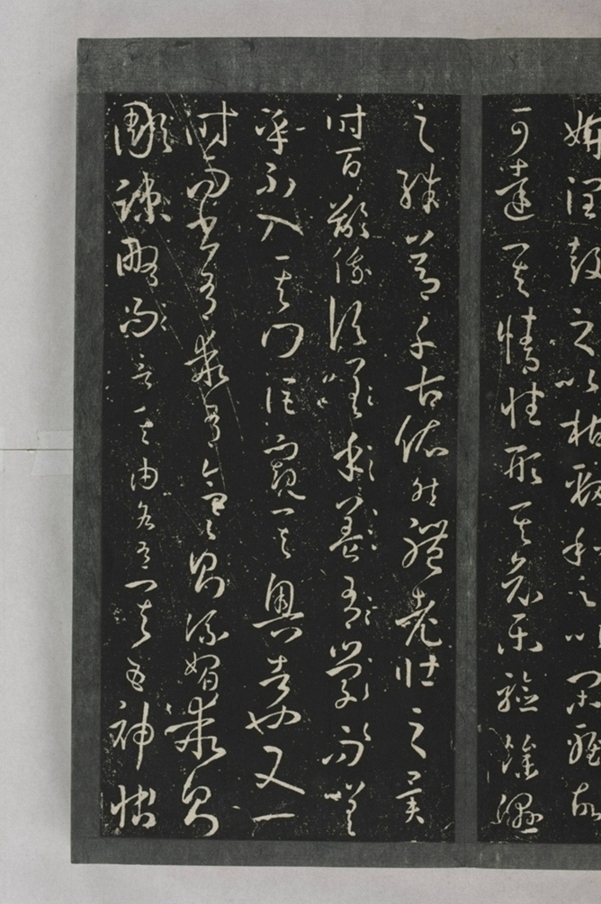 妍潤鼓之以枯勁和之以閑雅故
可達其情性形其哀樂驗燥濕
之殊節千古依然體老壯之異
時百齡俄頃嗟
乎不入其門詎窺其奧者也又一
時而書有乖有合合則流媚乖則
彫疎略言其由各有其五神怡